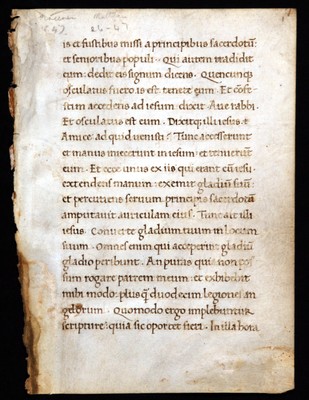 is et fustibus missi a principibus sacerdotū:
et senioribus populi. Qui autem tradidit
eum: dedit eis signum dicens. Quencunq;
osculatus fuero. is est: tenete eum. Et cōfe-
stim accedens ad iesum: dixit. Aue rabbi.
Et osculatus est eum. Dixitq; illi iesus.
Amice: ad quid uenisti? Tunc accesserunt
et manus miecerunt in iesum: et tenuerūt
eum. Et ecce unus ex iis qui erant cū iesu.
extendens manum: exemit gladiū suū:
et percutiens seruum principis sacerdotū
amputauit auriculam eius. Tunc ait illi
iesus. Conuerte gladium tuum in locum
suum. Omnes enim qui acceperint gladiū
gladio peribunt. An putas quia non pos
sum rogare patrem meum: et exhibebit
mihi modo: plus q̄ duodecim legiones an
gelorum. Quomodo ergo implebuntur
scripture? quia sic oportet fieri. In illa hora